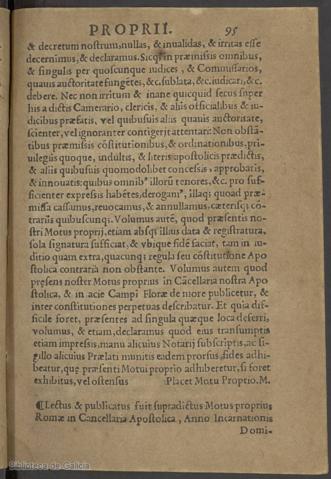 PROPRII. 95
& decretum nostrum, nullas, & inualidas, & irritas esse
decernimus, & declaramus. Sicq; in præmissis omnibus,
& singulis per quoscunque iudices, & Commissarios,
quauis auctoritate fungẽtes, &c. sublata, &c. iudicari, &c.
debere. Nec non irritum & inane quicquid secus super
his a dictis Camerario, clericis, & aliis officialibus & iu-
dicibus præfatis, vel quibusuis aliis quauis auctoritate,
scienter, vel ignoranter contigerit attentari: Non obstã-
tibus præmissis cõstitutionibus, & ordinationibus, pri-
uilegiis quoque, indultis, & literis apostolicis prædictis,
& aliis quibusuis quomodolibet concessis, approbatis,
& innouatis: quibus omnibꝰ illorũ tenores, &c. pro suf-
ficienter expressis habẽtes, derogamꝰ, illaq; quoad præ-
missa cassamus, reuocamus, & annullamus. cæterisq; cõ-
trariis quibuscunq;. Volumus autẽ, quod præsentis no-
stri Motus proprij, etiam absq; illius data & registratura,
sola signatura sufficiat, & vbique fidẽ faciat, tam in iu-
ditio quam extra, quacunq; regula seu cõstitutione Apo
stolica contraria non obstante. Volumus autem quod
præsens noster Motus proprius in Cãcellaria nostra Apo
stolica, & in acie Campi Floræ de more publicetur, &
inter constitutiones perpetuas describatur. Et quia dif-
ficile foret, præsentes ad singula quæque loca deferri,
volumus, & etiam, declaramus quod eius transumptis
etiam impressis, manu alicuius Notarij subscriptis, ac si-
gillo alicuius Prælati munitis eadem prorsus, fides adhi-
beatur, quę præsenti Motui proprio adhiberetur, si foret
exhibitus, vel ostensus Placet Motu Proprio. M.
¶ Lectus & publicatus fuit supradictus Motus proprius
Romæ in Cancellaria Apostolica, Anno Incarnationis
Domi-
Biblioteca de Galicia